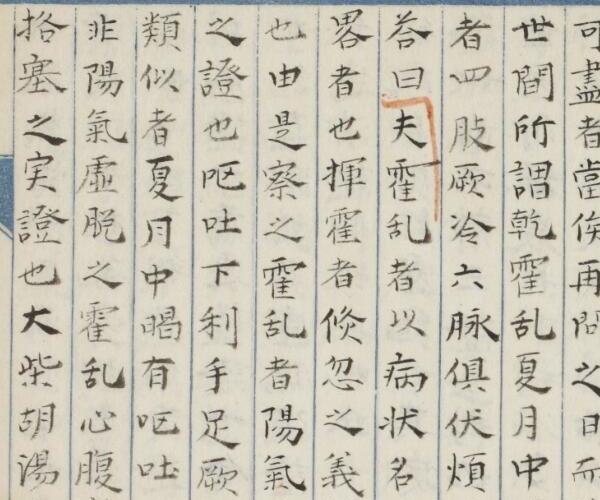 可盡者當俟再問之日而
世間所謂乾霍乱夏月中
者四肢厥冷六脉俱伏煩
答曰夫霍乱者以病状名
畧者也揮霍者倏忽之義
也由是察之霍乱者陽氣
之證也呕吐下利手足厥
類似者夏月中暍有呕吐
非陽氣虛脱之霍乱心腹
挌塞之実證也大柴胡湯